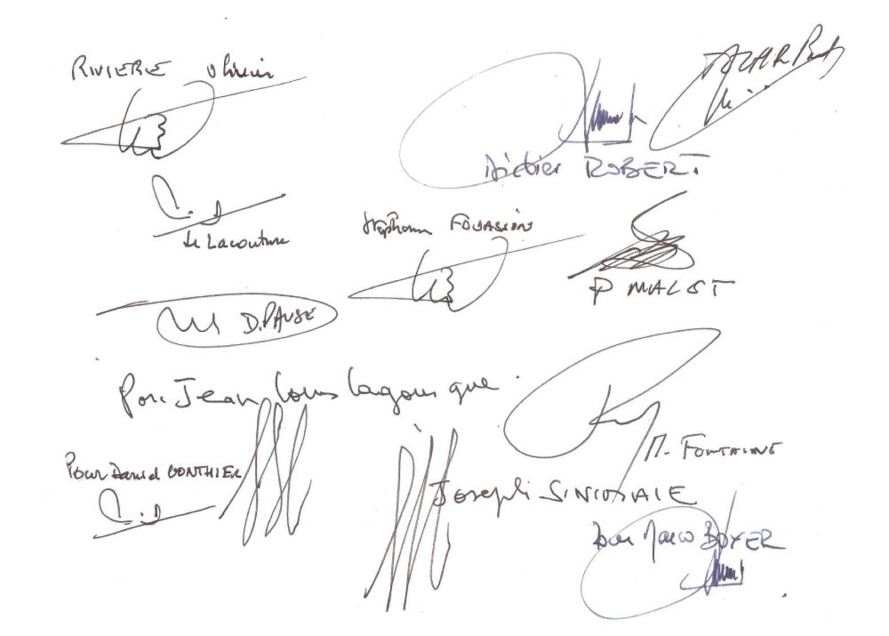 RIVIERE Olivier
AZHAR
Didier ROBERT
de Lacouture
Stéphane FOUASSIN
P MALET
D. PAUSE
Pour Jean Louis Lagourgue
M. FONTAINE
Pour Daniel GONTHIER
Joseph SINIMALE
Pour Marco BOYER